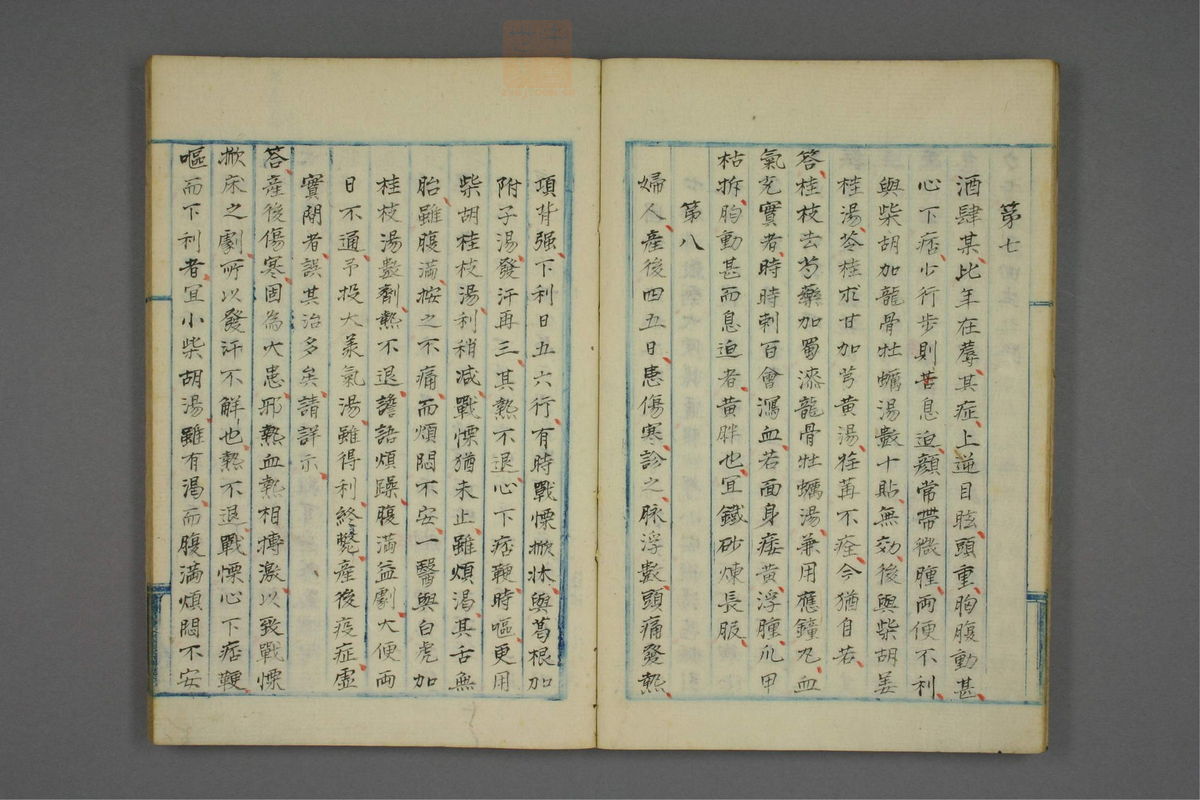 第七
酒肆某比年在蓐其症上逆目眩頭重胸腹動甚
心下痞少行步則苦息迫顔常帶微腫両便不利
與柴胡加龍骨牡蠣湯數十貼無効後與柴胡姜
桂湯苓桂朮甘加芎黄湯荏苒不痊今猶自若
答桂枝去芍藥加蜀漆龍骨牡蠣湯兼用應鐘丸血
氣充實者時時刺百會瀉血若面身痿黄浮腫爪甲
枯拆胸動甚而息迫者黄胖也宜鐵砂煉長服
第八
婦人産後四五日患傷寒診之脉浮數頭痛發熱
項背强下利日五六行有時戰慄掀牀與葛根加
附子湯發汗再三其熱不退心下痞鞕時嘔更用
柴胡桂枝湯利稍减戰慄猶未止雖煩渇其舌無
胎雖腹満按之不痛而煩悶不安一醫與白虎加
桂枝湯數劑熱不退譫語煩躁腹満益劇大便両
日不通予投大羕氣湯雖得利終斃産後疫症虚
實間者誤其治多矣請詳示
答産後傷寒固為大患邪熱血熱相搏激以致戰慄
掀床之劇所以發汗不解也熱不退戰慄心下痞鞕
嘔而下利者宜小柴胡湯雖有渇而腹満煩悶不安